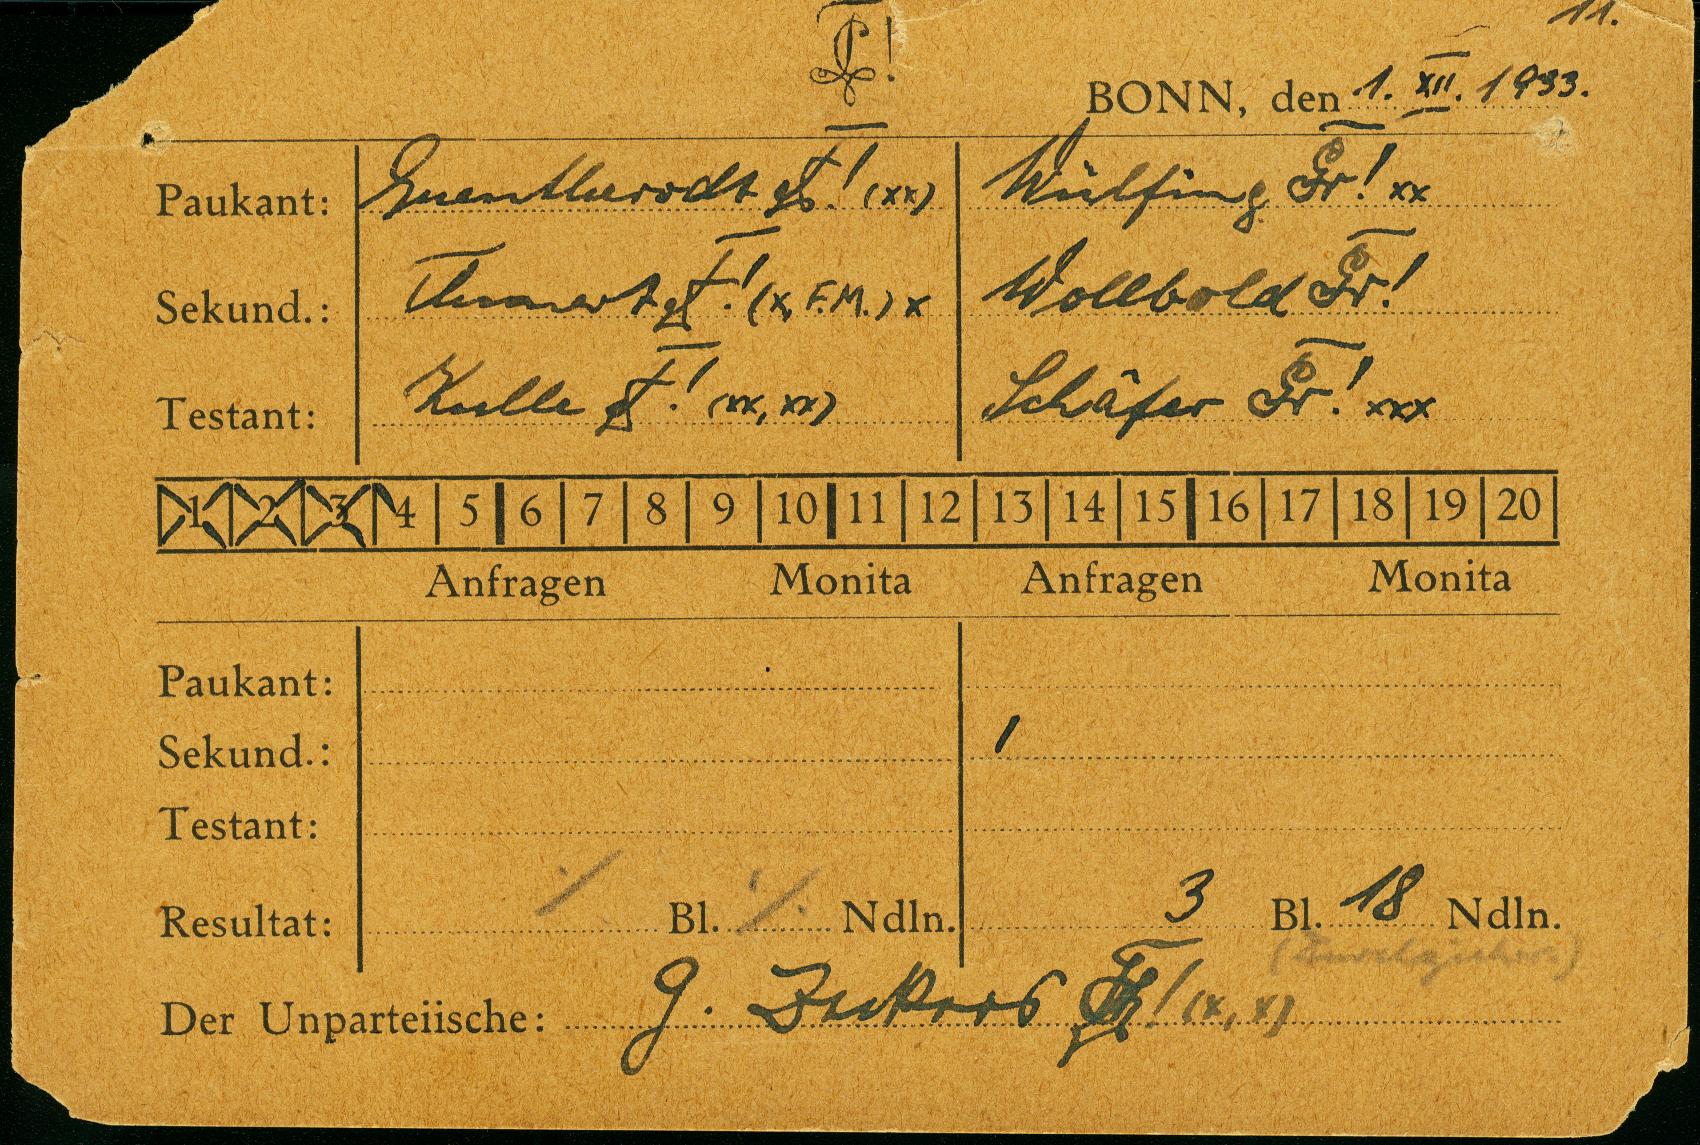 11.
BONN, den 1. XII. 1933.
Paukant: Guentherodt ! (xx) Wülfing Gr! xx
Sekund.: ! (x, F.M.) x Wollbold Gr!
Testant: Kalle ! (xx, xx) Schäfer Gr! xxx
1 2 3 4 5 6 7 8 9 10 11 12 13 14 15 16 17 18 19 20
Anfragen Monita Anfragen Monita
Paukant:
Sekund.: /
Testant:
Resultat: ·/. Bl. ·/. Ndln. 3 Bl. 18 Ndln.
Der Unparteiische: G. ! (x, x)